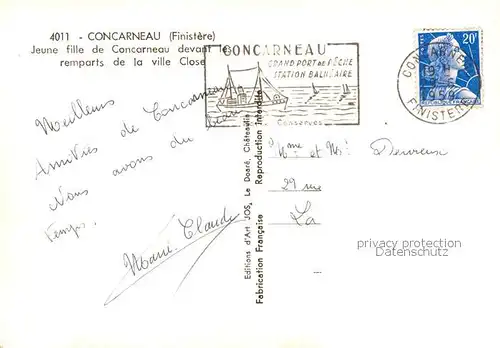 4011 - CONCARNEAU (Finistère)
Jeune fille de Concarneau devant les
remparts de la ville Close
CONCARNEAU
GRAND PORT DE PÊCHE
STATION BALNÉAIRE
Conserves
CONCARNEAU
FINISTERE
20F
Meilleurs
Amitiés de Concarneau
Nous avons du beau
temps.
Marie Claude
Editions d'Art JOS, Le Doaré, Châteaulin
Reproduction Interdite
Fabrication Française
Mme et Mr Devreux
29 rue
La
privacy protection
Datenschutz